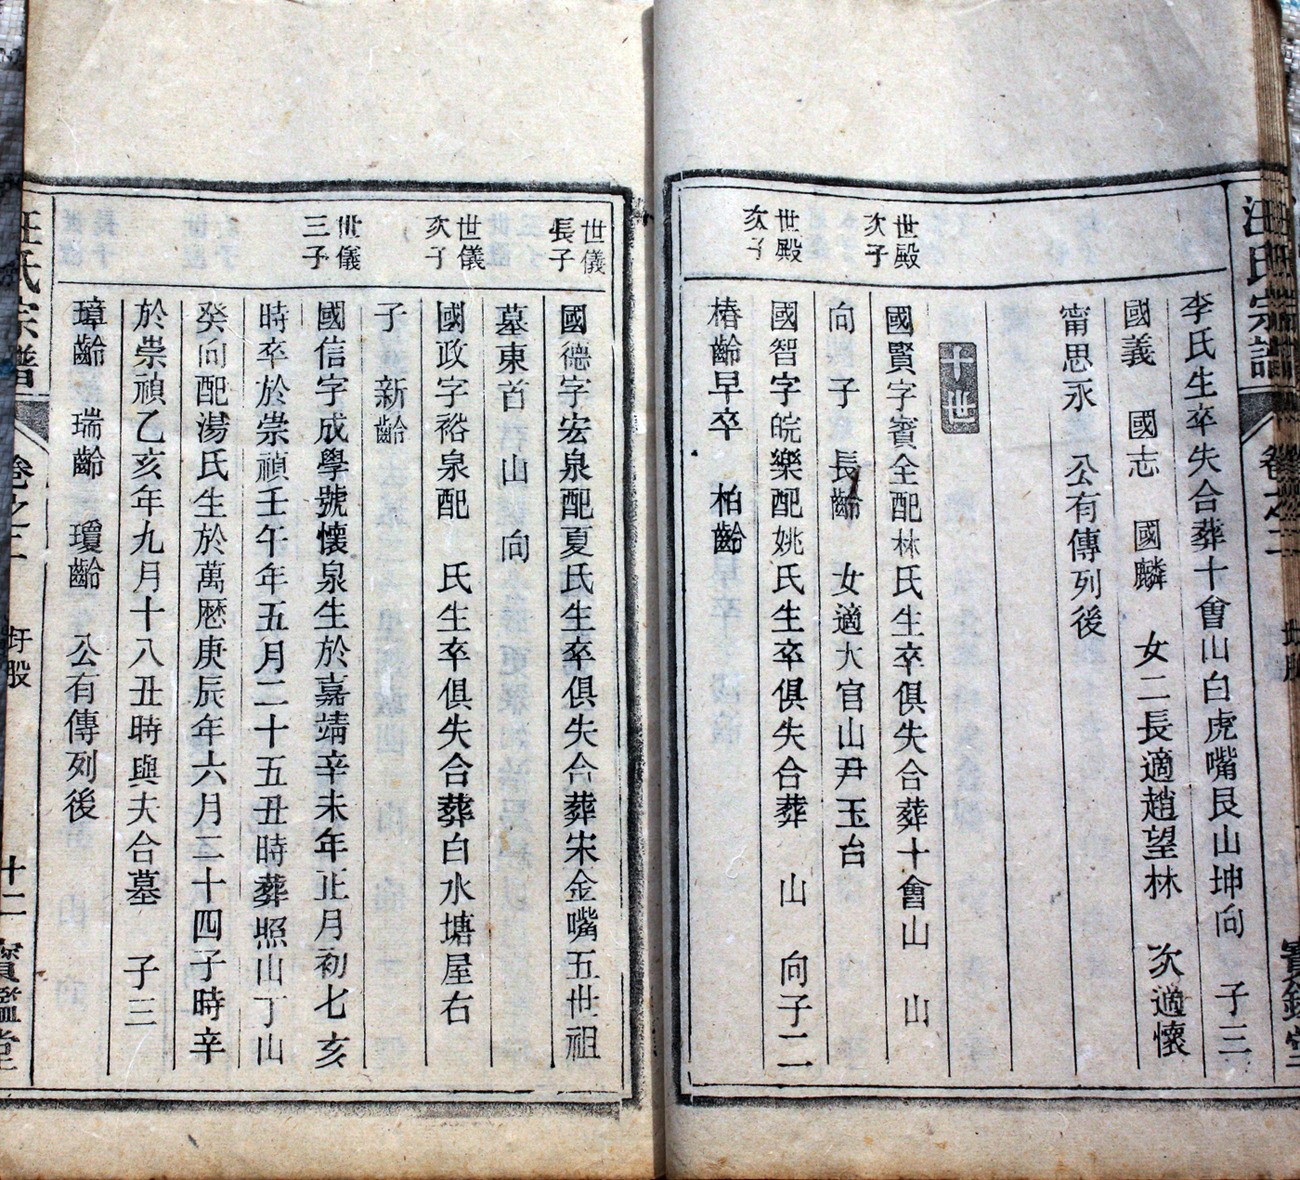 汪氏宗譜 卷之二
李氏生卒失合葬十會山白虎嘴艮山坤向 子三
國義 國志 國麟 女二長適趙望林 次適懷
甯思永 公有傳列後
十世
世殿次子
國賢字賓全配林氏生卒俱失合葬十會山 山
向 子 長齡 女適大官山尹玉台
世殿次子
國智字皖樂配姚氏生卒俱失合葬 山 向子二
椿齡早卒 柏齡
世儀長子
國德字宏泉配夏氏生卒俱失合葬宋金嘴五世祖
墓東首 山 向
世儀次子
國政字裕泉配 氏生卒俱失合葬白水塘屋右
子 新齡
世儀三子
國信字成學號懷泉生於嘉靖辛未年正月初七亥
時卒於崇禎壬午年五月二十五丑時葬照山丁山
癸向配湯氏生於萬曆庚辰年六月二十四子時辛
於崇禎乙亥年九月十八丑時與夫合墓 子三
璋齡 瑞齡 瓊齡 公有傳列後
汪氏宗譜 卷之二 圩股 十二 寶鑑堂